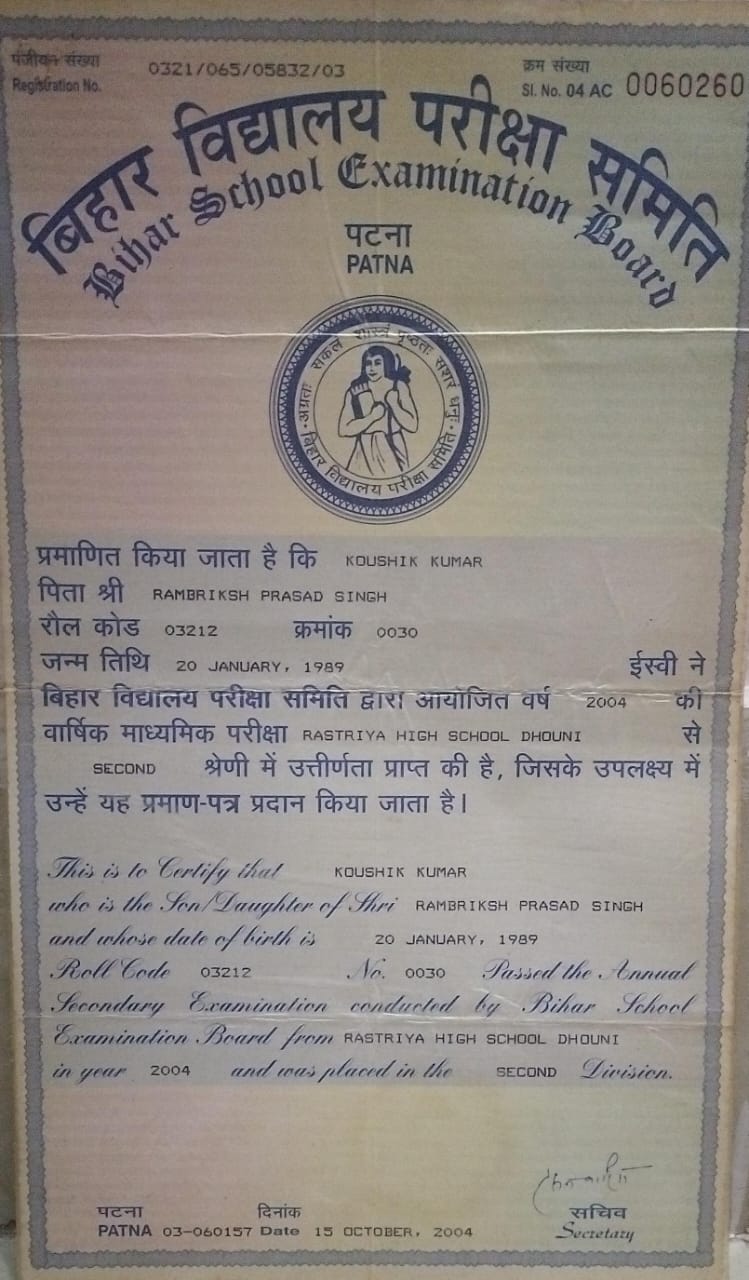 पंजीयन संख्या
Registration No. 0321/065/05832/03
क्रम संख्या
Sl. No. 04 AC 0060260
बिहार विद्यालय परीक्षा समिति
Bihar School Examination Board
पटना
PATNA
अग्रतः सकलं शास्त्रं पृष्ठतः सशरं धनुः
बिहार विद्यालय परीक्षा समिति
प्रमाणित किया जाता है कि KOUSHIK KUMAR
पिता श्री RAMBRIKSH PRASAD SINGH
रौल कोड 03212 क्रमांक 0030
जन्म तिथि 20 JANUARY, 1989 ईस्वी ने
बिहार विद्यालय परीक्षा समिति द्वारा आयोजित वर्ष 2004 की
वार्षिक माध्यमिक परीक्षा RASTRIYA HIGH SCHOOL DHOUNI से
SECOND श्रेणी में उत्तीर्णता प्राप्त की है, जिसके उपलक्ष्य में
उन्हें यह प्रमाण-पत्र प्रदान किया जाता है।
This is to Certify that KOUSHIK KUMAR
who is the Son/Daughter of Shri RAMBRIKSH PRASAD SINGH
and whose date of birth is 20 JANUARY, 1989
Roll Code 03212 No. 0030 Passed the Annual
Secondary Examination conducted by Bihar School
Examination Board from RASTRIYA HIGH SCHOOL DHOUNI
in year 2004 and was placed in the SECOND Division.
पटना दिनांक सचिव
PATNA 03-060157 Date 15 OCTOBER, 2004 Secretary